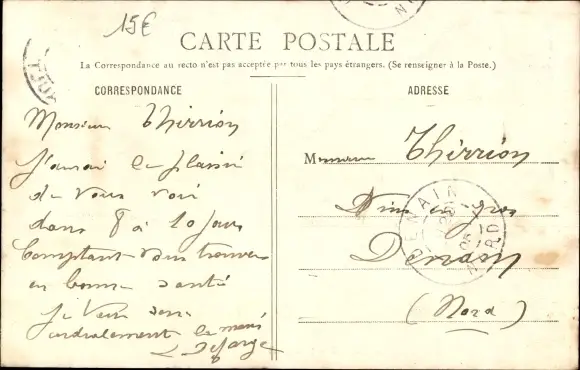 15€
CARTE POSTALE
La Correspondance au recto n'est pas acceptée par tous les pays étrangers. (Se renseigner à la Poste.)
CORRESPONDANCE
Monsieur Thirrion
J'aurai le plaisir
de vous voir
dans 8 à 10 jours
Comptant vous trouver
en bonne santé
je vous serre
cordialement la main
Deforge
ADRESSE
Monsieur Thirrion
Vins en gros
Denain
(Nord)
DENAIN
NORD